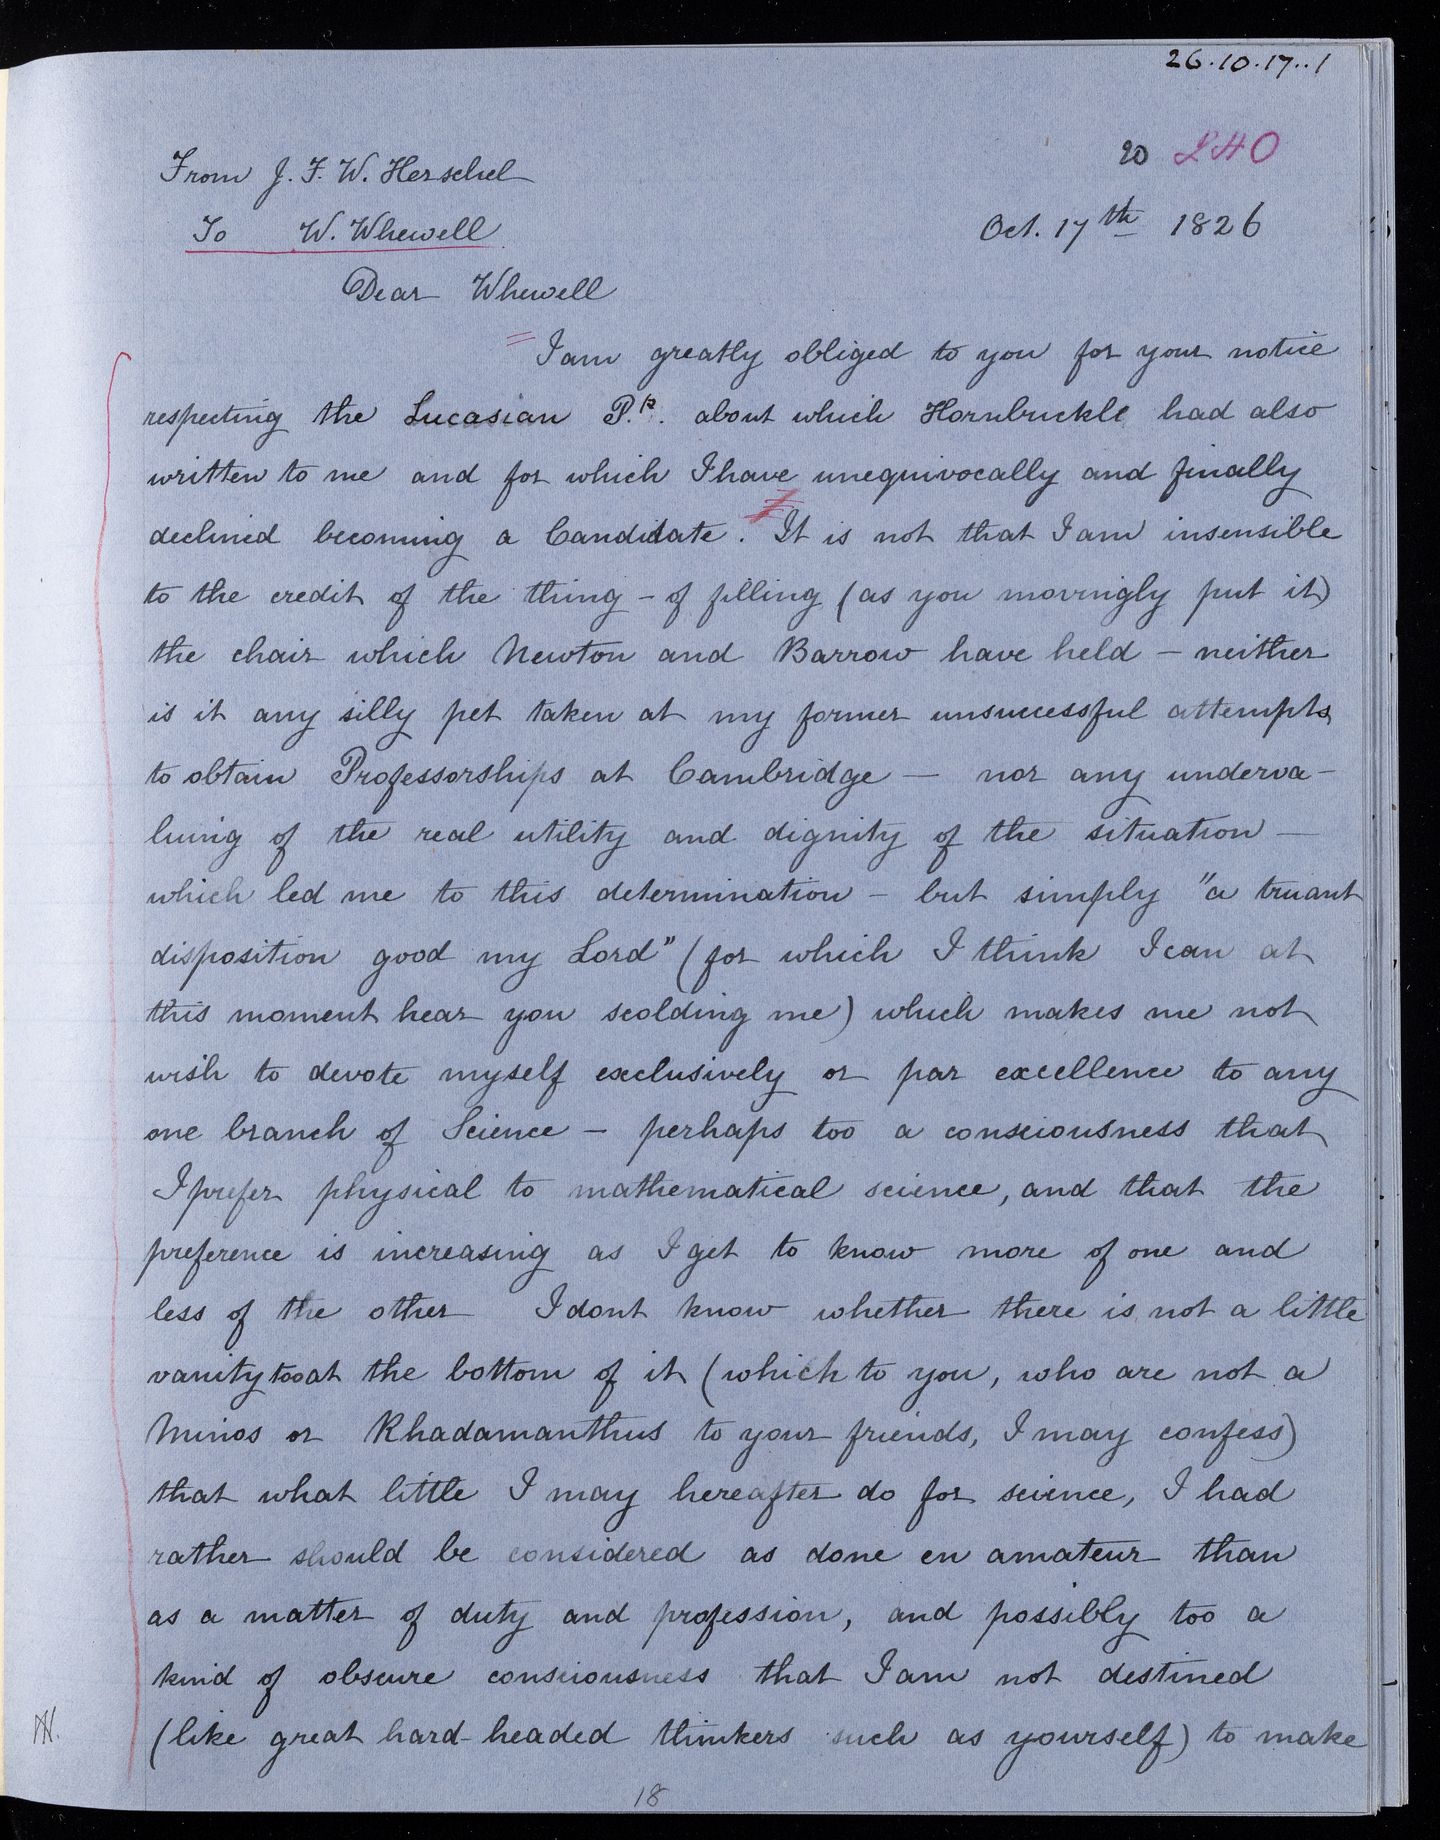 26.10.17..1
20 240
From J. F. W. Herschel
To W. Whewell
Oct. 17th 1826
Dear Whewell
I am greatly obliged to you for your notice
respecting the Lucasian P.p. about which Hornbuckle had also
written to me and for which I have unequivocally and finally
declined becoming a Candidate. It is not that I am insensible
to the credit of the thing - of filling (as you movingly put it)
the chair which Newton and Barrow have held - neither
is it any silly pet taken at my former unsuccessful attempts
to obtain Professorships at Cambridge - nor any underva-
luing of the real utility and dignity of the situation -
which led me to this determination - but simply "a truant
disposition good my Lord" (for which I think I can at
this moment hear you scolding me) which makes me not
wish to devote myself exclusively or par excellence to any
one branch of Science - perhaps too a consciousness that
I prefer physical to mathematical science, and that the
preference is increasing as I get to know more of one and
less of the other I dont know whether there is not a little
vanity too at the bottom of it (which to you, who are not a
Minos or Rhadamanthus to your friends, I may confess)
that what little I may hereafter do for science, I had
rather should be considered as done en amateur than
as a matter of duty and profession, and possibly too a
kind of obscure consciousness that I am not destined
(like great hard-headed thinkers such as yourself) to make
18